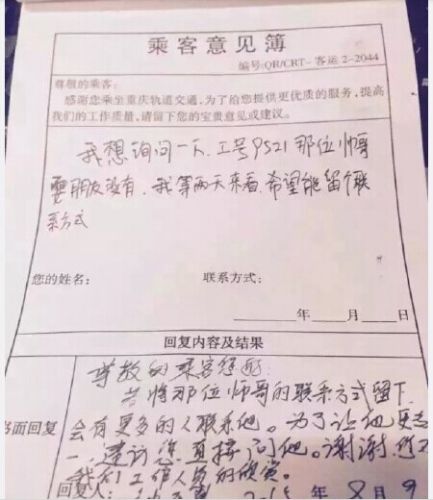 乘客意见簿
编号:QR/CRT-客运 2-2044
尊敬的乘客:
感谢您乘坐重庆轨道交通,为了给您提供更优质的服务,提高
我们的工作质量,请留下您的宝贵意见或建议。
我想询问一下,工号9521那位帅哥
耍朋友没有,我等两天来看,希望能留个联
系方式
您的姓名: 联系方式:
年 月 日
回复内容及结果
尊敬的乘客您好:
若将那位帅哥的联系方式留下
书面回复 会有更多的人联系他。为了让他更
一,建议您直接问他。谢谢您对
我们工作人员的欣赏。
回复人: 年 8月9